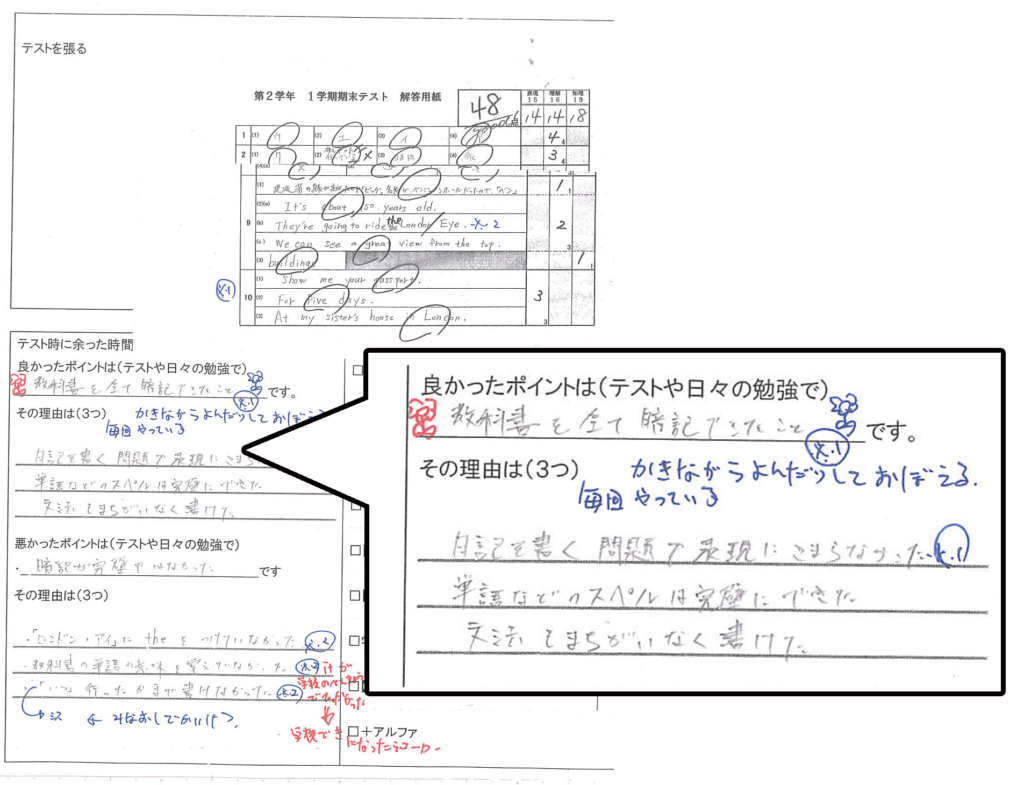 テストを張る
第2学年 1学期期末テスト 解答用紙
48点
good
表現 15 理解 16 知理 19
14 14 18
1 (1) ウ (2) エ (3) イ (4)
4
2 (1) ク (2) (3) (4)
3
(1)
1
(2)(a) It's about 150 years old.
9 (b) They're going to ride the London Eye. ※2
2
(c) We can see a great view from the top.
(3) buildings
1
※1
10 (1) Show me your passport.
(2) For five days.
3
(3) At my sister's house in London.
テスト時に余った時間
良かったポイントは(テストや日々の勉強で)
教科書を全て暗記できたこと です。
※1
その理由は(3つ)
かきながらよんだりしておぼえる
毎回やっている
日記を書く問題で表現にこまら
単語などのスペルは完璧にできた
文法もまちがいなく書けた
悪かったポイントは(テストや日々の勉強で)
・暗記が完璧ではなかった です
その理由は(3つ)
・「ロンドン・アイ」に the をつけていなかった ※2
・教科書の単語の意味を覚えていなかった ※2
・「いつ」行ったかまで書けなかった ※2
ミス ← みなおしでかいけつ
学校で
□+アルファ
良かったポイントは(テストや日々の勉強で)
教科書を全て暗記できたこと です。
※1
その理由は(3つ)
かきながらよんだりしておぼえる.
毎回やっている
日記を書く問題で表現にこまらなかった ※1
単語などのスペルは完璧にできた
文法もまちがいなく書けた